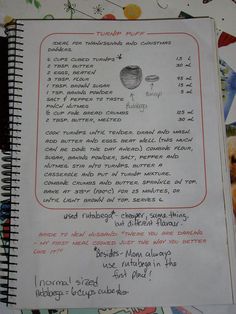 TURNIP PUFF
IDEAL FOR THANKSGIVING AND CHRISTMAS
DINNERS.
6 CUPS CUBED TURNIPS* 1.5 L
2 TBSP. BUTTER 30 mL
2 EGGS, BEATEN
3 TBSP. FLOUR 45 mL
1 TBSP. BROWN SUGAR 15 mL
1 TSP. BAKING POWDER 5 mL
SALT & PEPPER TO TASTE
PINCH NUTMEG
½ CUP FINE BREAD CRUMBS
2 TBSP. BUTTER, MELTED 30 mL
Rutabaga
turnip
COOK TURNIPS UNTIL TENDER. DRAIN AND MASH.
ADD BUTTER AND EGGS. BEAT WELL (THIS MUCH
CAN BE DONE THE DAY AHEAD). COMBINE FLOUR,
SUGAR, BAKING POWDER, SALT, PEPPER AND
NUTMEG. STIR INTO TURNIPS. BUTTER A
CASSEROLE AND PUT IN TURNIP MIXTURE.
COMBINE CRUMBS AND BUTTER. SPRINKLE ON TOP.
BAKE AT 375°F (190°C) FOR 25 MINUTES, OR
UNTIL LIGHT BROWN ON TOP. SERVES 6.
used rutabaga* - cheaper, same thing,
but different flavour -
BRIDE TO NEW HUSBAND: "THERE YOU ARE DARLING
- MY FIRST MEAL COOKED JUST THE WAY YOU BETTER
LIKE IT!"
*Besides - Mom always
use rutabaga in the
first place!
1 normal sized
Rutabaga = 6 cups cubes